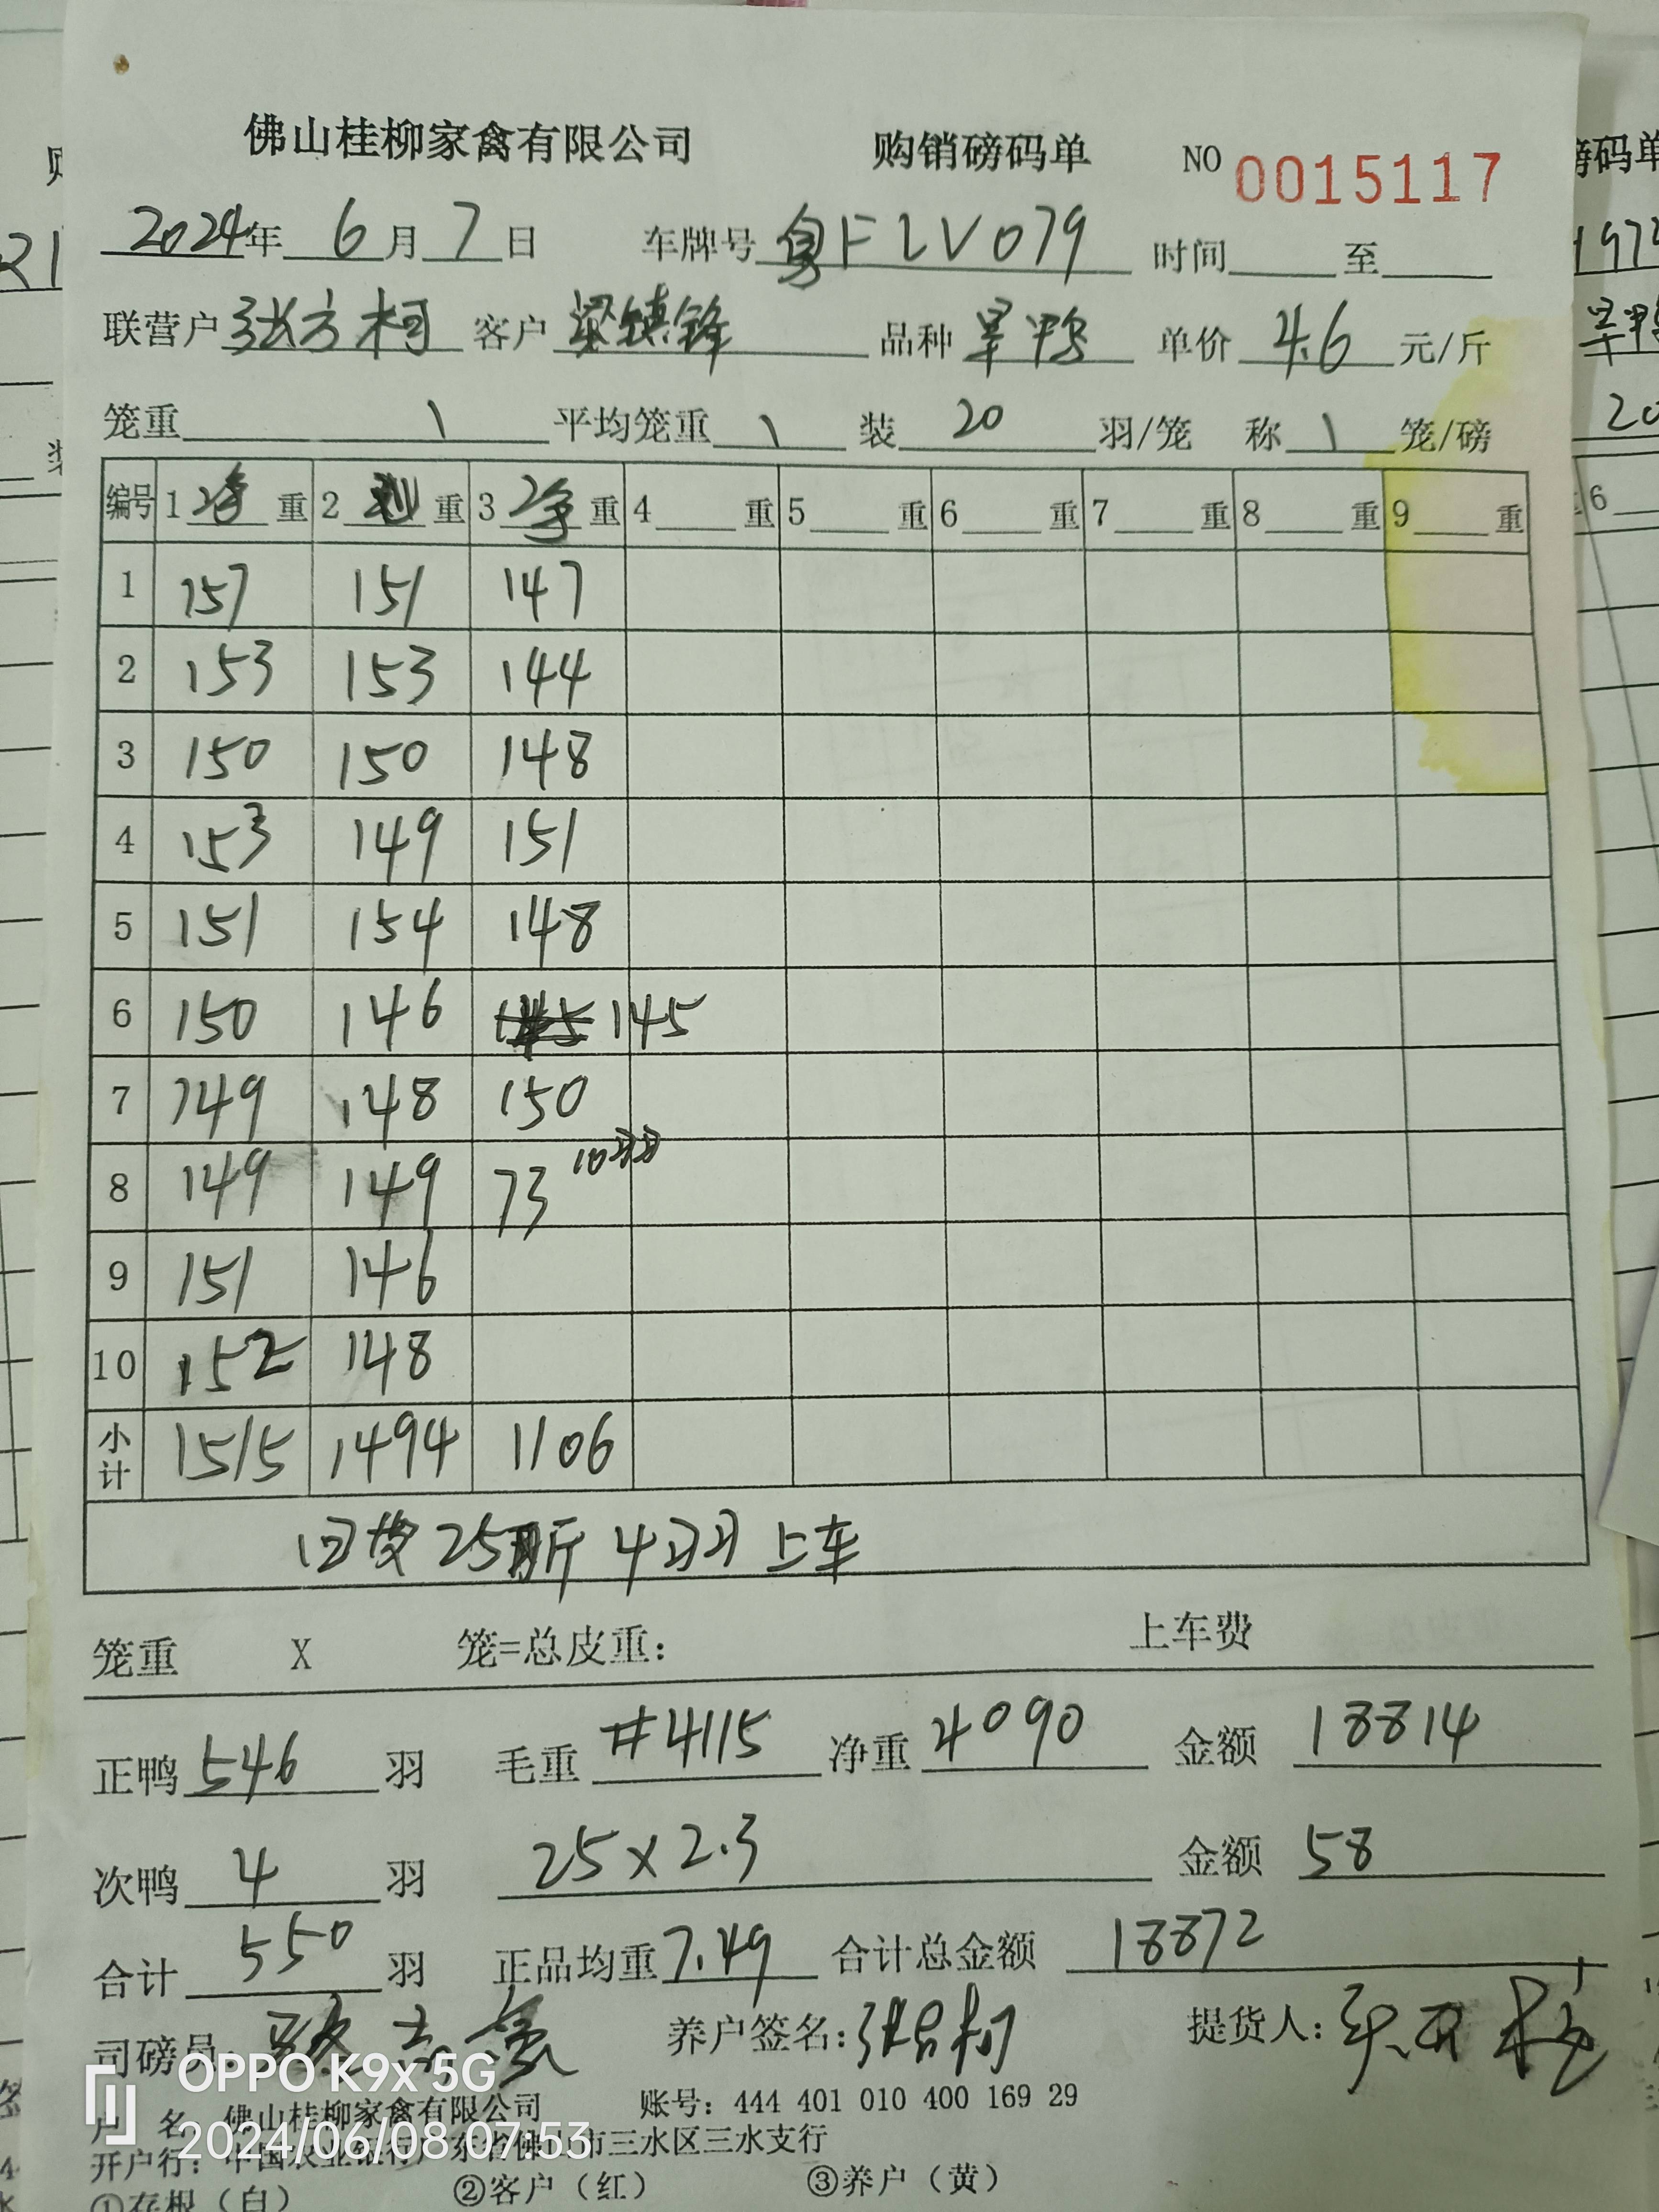 佛山桂柳家禽有限公司 购销磅码单 NO 0015117
2024年 6月 7日 车牌号 粤FLV079 时间 至
联营户 张方柯 客户 梁镇锋 品种 旱鸭 单价 4.6 元/斤
笼重 \ 平均笼重 \ 装 20 羽/笼 称 \ 笼/磅
编号 1 净 重 2 净 重 3 净 重 4 重 5 重 6 重 7 重 8 重 9 重
1 157 151 147
2 153 153 144
3 150 150 148
4 153 149 151
5 151 154 148
6 150 146 145
7 149 148 150
8 149 149 73 10羽
9 151 146
10 152 148
小计 1515 1494 1106
25斤 4羽 上车
笼重 X 笼=总皮重: 上车费
正鸭 546 羽 毛重 #4115 净重 4090 金额 18814
次鸭 4 羽 25×2.3 金额 58
合计 550 羽 正品均重 7.49 合计总金额 18872
司磅员: 养户签名: 提货人:
OPPO K9x 5G
户 名 佛山桂柳家禽有限公司 账号: 444 401 010 400 169 29
2024/06/08 07:53
开户行: 中国农业银行广东省佛山市三水区三水支行
①存根(白) ②客户(红) ③养户(黄)